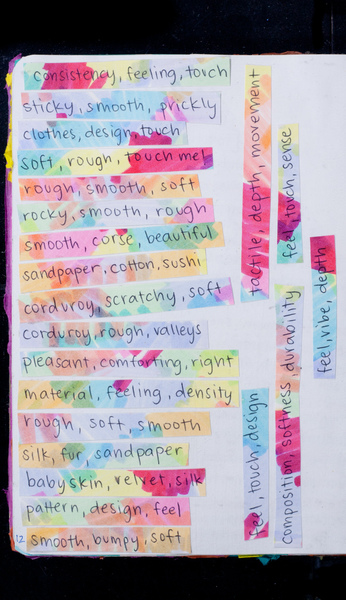 consistency, feeling, touch
sticky, smooth, prickly
clothes, design, touch
soft, rough, touch me!
rough, smooth, soft
rocky, smooth, rough
smooth, corse, beautiful
sandpaper, cotton, sushi
corduroy, scratchy, soft
corduroy, rough, valleys
pleasant, comforting, right
material, feeling, density
rough, soft, smooth
silk, fur, sandpaper
babyskin, velvet, silk
pattern, design, feel
smooth, bumpy, soft
12
tactile, depth, movement
feel, touch, design
feel, touch, sense
composition, softness, durability
feel, vibe, depth